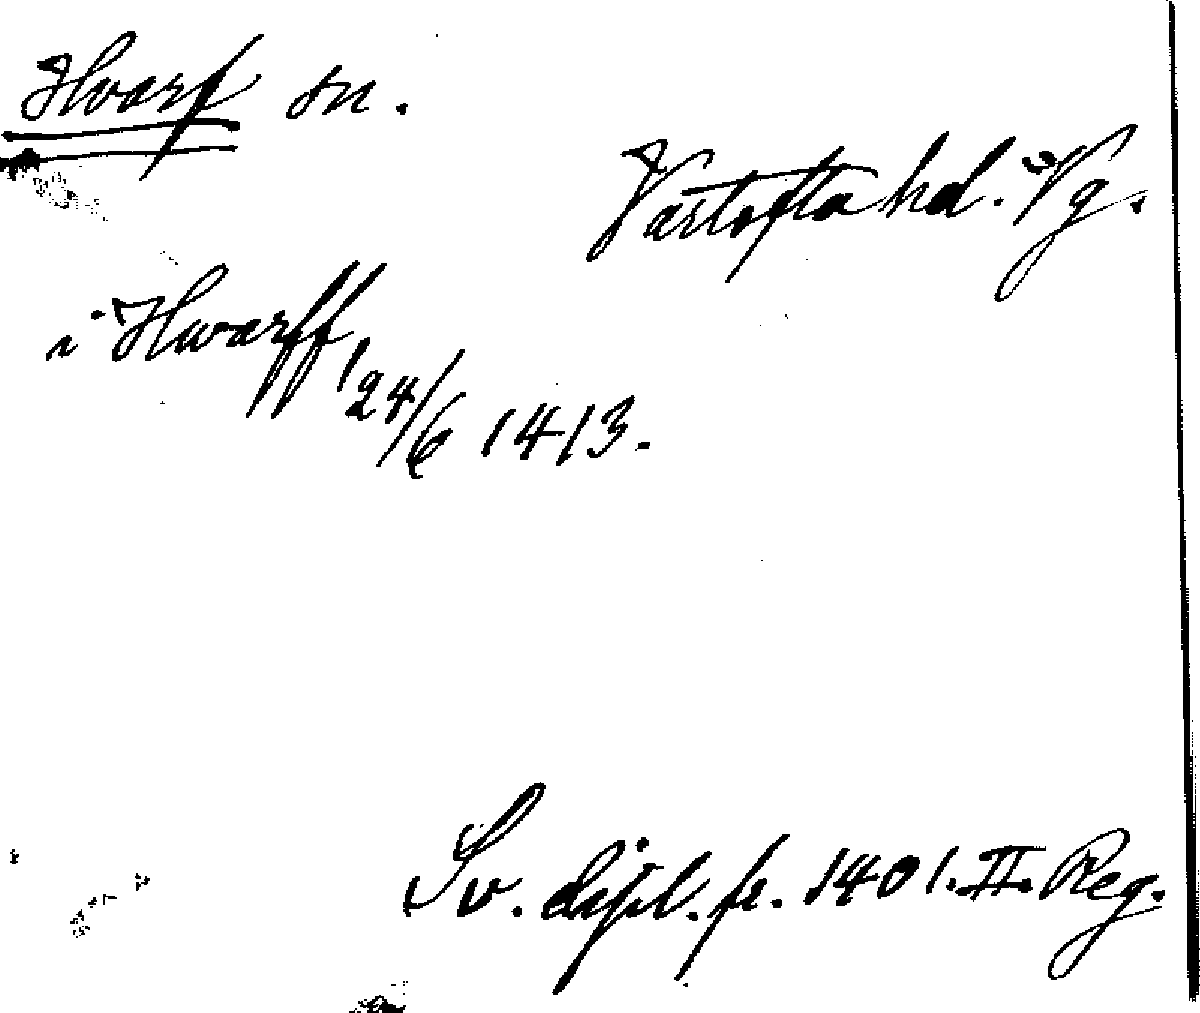 Hvarf sn.
Vartofta hd. Vg.
i Hwarff 24/6 1413.
Sv. dipl. fr. 1401. II. Reg.